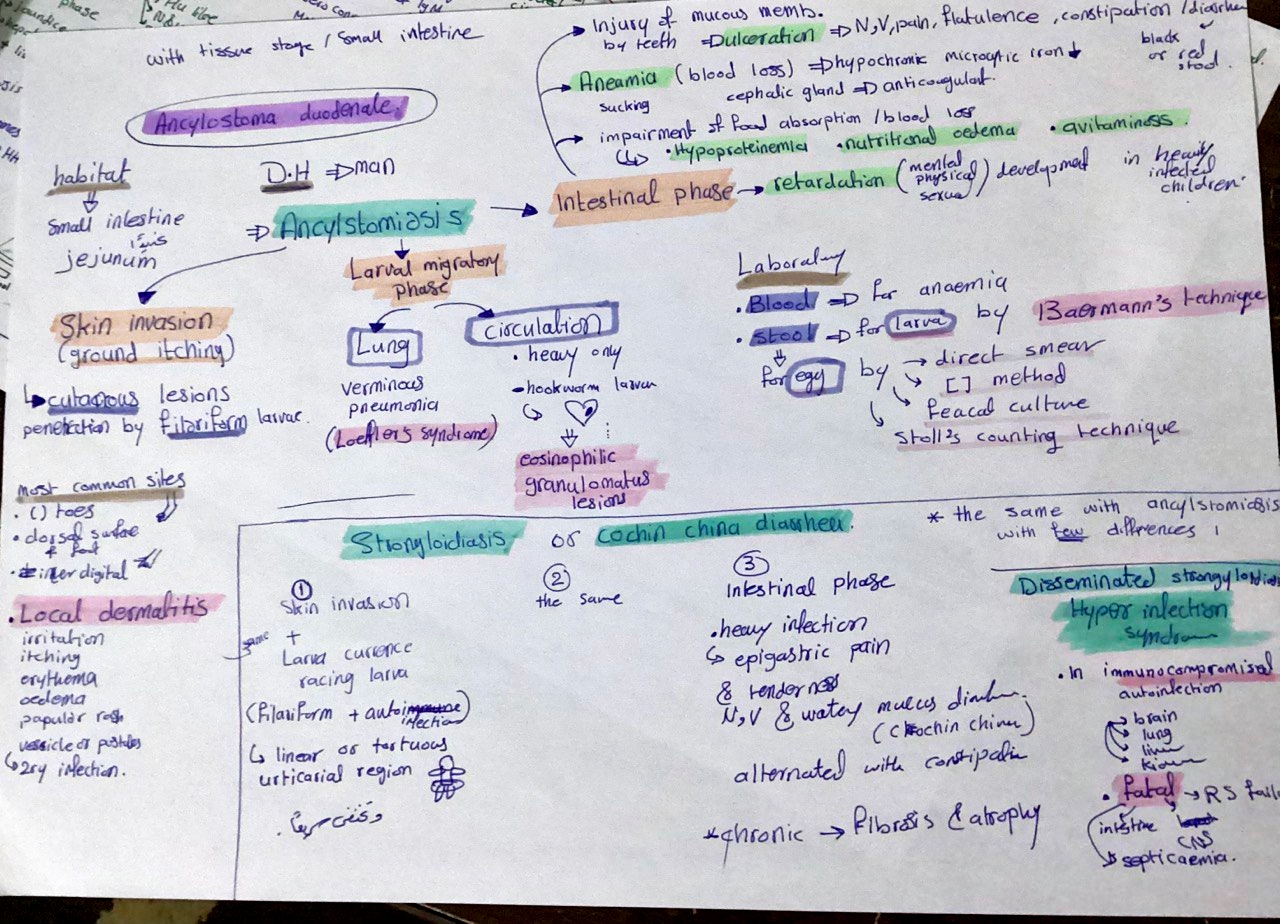 with tissue stage / small intestine
Ancylostoma duodenale.
habitat
small intestine
jejunum
D.H ⇒ man
⇒ Ancylstomiasis
→ Intestinal phase
→ Injury of mucous memb.
by teeth ⇒ ulceration ⇒ N,V, pain, flatulence, constipation / diarrhea
black
or red
stool.
→ Aneamia (blood loss) ⇒ hypochronic microcytic iron ↓
sucking cephalic gland ⇒ anticoagulant.
→ impairment of food absorption / blood loss
↳ • Hypoproteinemia • nutritional oedema • avitaminoss.
→ retardation (mental physical sexual) development in heavily infected children.
Skin invasion
(ground itching)
↳ cutanous lesions
penetection by filariform larvae.
most common sites
• () toes
• dorsal surface
& foot
• inter digital
• Local dermatitis
irritation
itching
erythema
oedema
papular rash
vesicle or pustules
↳ 2ry infection.
Larval migratory
phase
Lung
verminous
pneumonia
(Loeffler's syndrome)
circulation
• heavy only
hookworm larvae
eosinophilic
granulomatus
lesions
Laboratory
• Blood ⇒ for anaemia
• stool ⇒ for larva by Baermann's technique
for egy by → direct smear
[] method
feacal culture
Stoll's counting technique
Strongloidiasis or cochin china diarrheea.
* the same with ancylstomiosis
with few differences
①
Skin invasion
same
+
Larva currence
racing larva
(filariform + auto infection)
↳ linear or tortuous
urticarial region
②
the same
③
Intestinal phase
• heavy infection
↳ epigastric pain
& tenderness
N,V & watery mucus diarrhea.
(Cochin china)
alternated with constipatin
* chronic → fibrosis & atrophy
Disseminated strongyloidias
Hyper infection
syndrom
• In immunocompromised
autoinfection
brain
lung
liver
kidney
• fatal → RS fail
intestine
CNS
septicaemia.